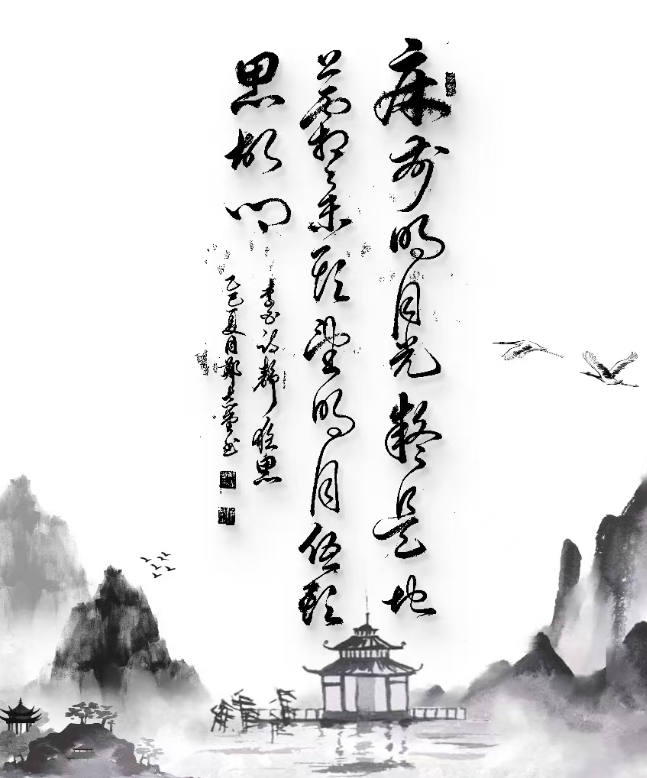 床前明月光疑是地
上霜举头望明月低头
思故乡
李白诗静夜思
乙巳夏月郑志肇书